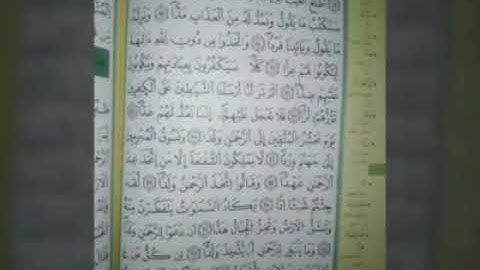 سَنَكْتُبُ مَا يَقُولُ وَنَمُدُّ لَهُ مِنَ الْعَذَابِ مَدًّا وَنَرِثُهُ
مَا يَقُولُ وَيَأْتِينَا فَرْدًا وَاتَّخَذُوا مِن دُونِ اللَّهِ ءَالِهَةً
لِّيَكُونُوا لَهُمْ عِزًّا كَلَّا سَيَكْفُرُونَ بِعِبَادَتِهِمْ وَيَكُونُونَ
عَلَيْهِمْ ضِدًّا أَلَمْ تَرَ أَنَّا أَرْسَلْنَا الشَّيَاطِينَ عَلَى الْكَافِرِينَ
تَؤُزُّهُمْ أَزًّا فَلَا تَعْجَلْ عَلَيْهِمْ إِنَّمَا نَعُدُّ لَهُمْ عَدًّا
يَوْمَ نَحْشُرُ الْمُتَّقِينَ إِلَى الرَّحْمَنِ وَفْدًا وَنَسُوقُ الْمُجْرِمِينَ
إِلَى جَهَنَّمَ وِرْدًا لَّا يَمْلِكُونَ الشَّفَاعَةَ إِلَّا مَنِ اتَّخَذَ عِندَ
الرَّحْمَنِ عَهْدًا وَقَالُوا اتَّخَذَ الرَّحْمَنُ وَلَدًا لَّقَدْ
جِئْتُمْ شَيْئًا إِدًّا يَكَادُ السَّمَوَاتُ يَتَفَطَّرْنَ مِنْهُ
وَتَنشَقُّ الْأَرْضُ وَتَخِرُّ الْجِبَالُ هَدًّا أَن دَعَوْا لِلرَّحْمَنِ وَلَدًا
وَمَا يَنبَغِي لِلرَّحْمَنِ أَن يَتَّخِذَ وَلَدًا إِن كُلُّ مَن